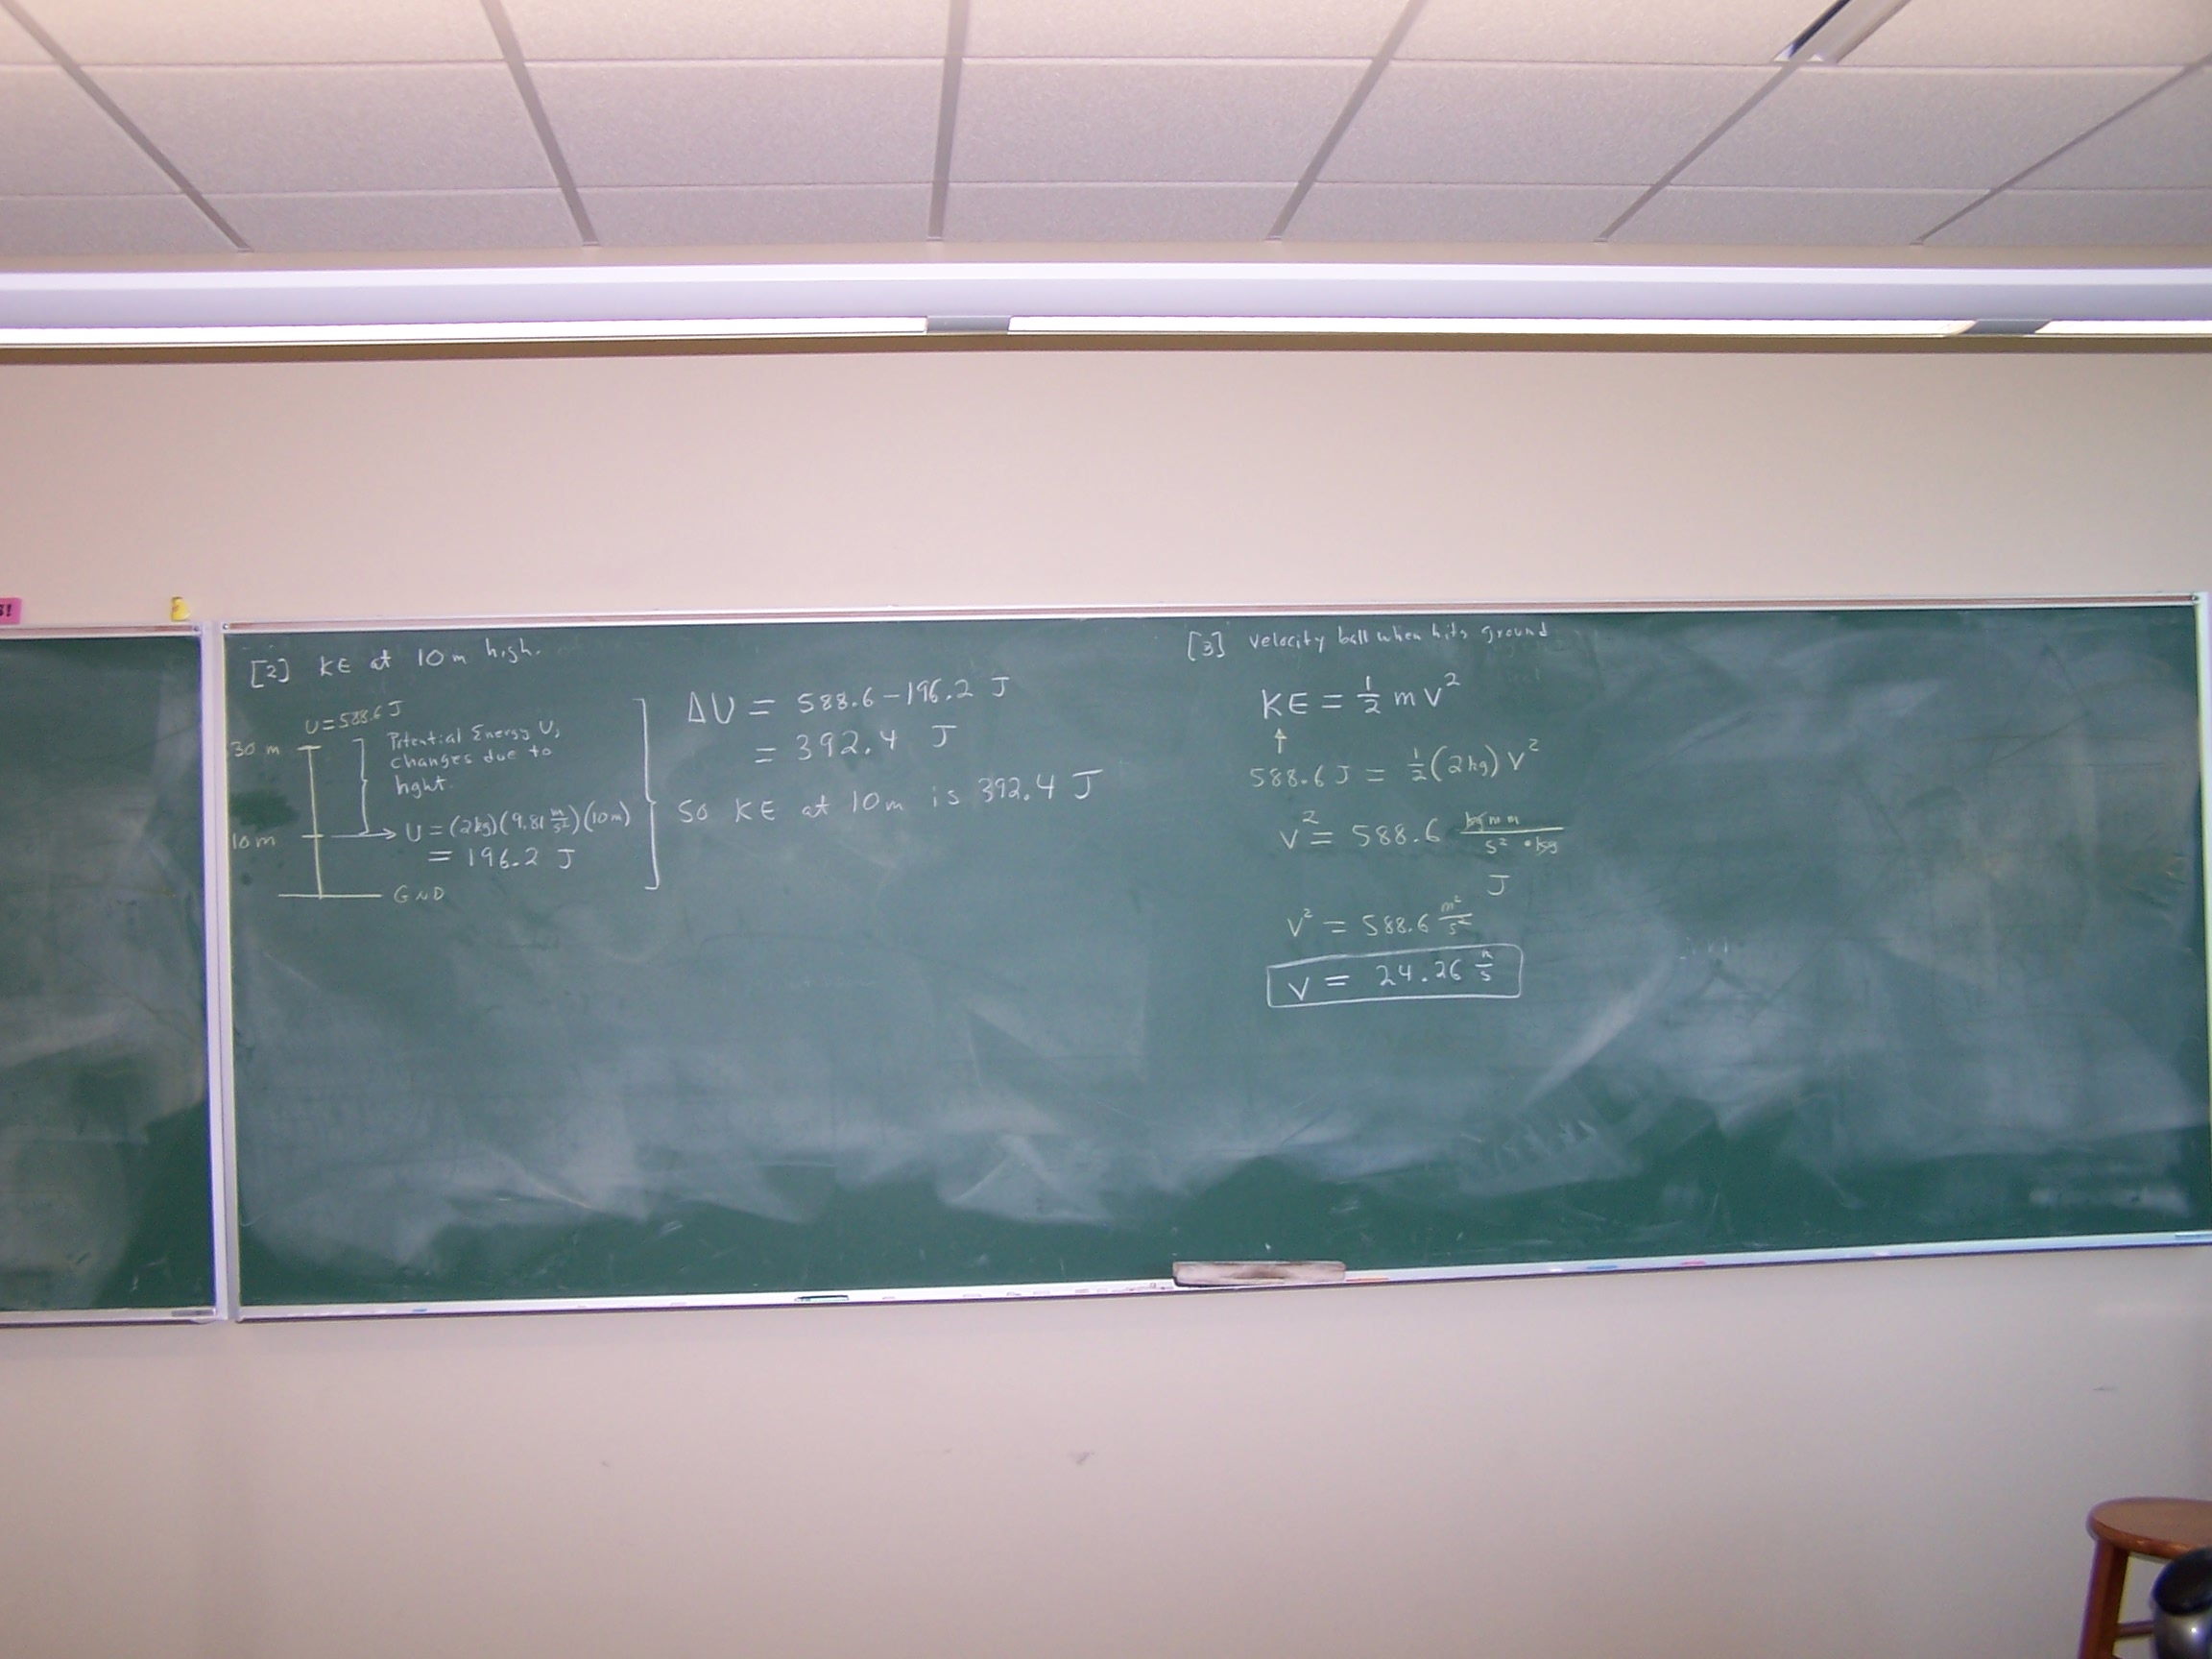 [2] KE at 10 m high.
U = 588.6 J
30 m
Potential Energy U,
changes due to
hght.
10 m
U = (2kg)(9.81 m/s²)(10m)
= 196.2 J
GND
ΔU = 588.6 - 196.2 J
= 392.4 J
So KE at 10m is 392.4 J
[3] velocity ball when hits ground
KE = 1/2 m v²
↑
588.6 J = 1/2 (2kg) v²
v² = 588.6 kg m m / s² • kg
J
v² = 588.6 m²/s²
v = 24.26 m/s